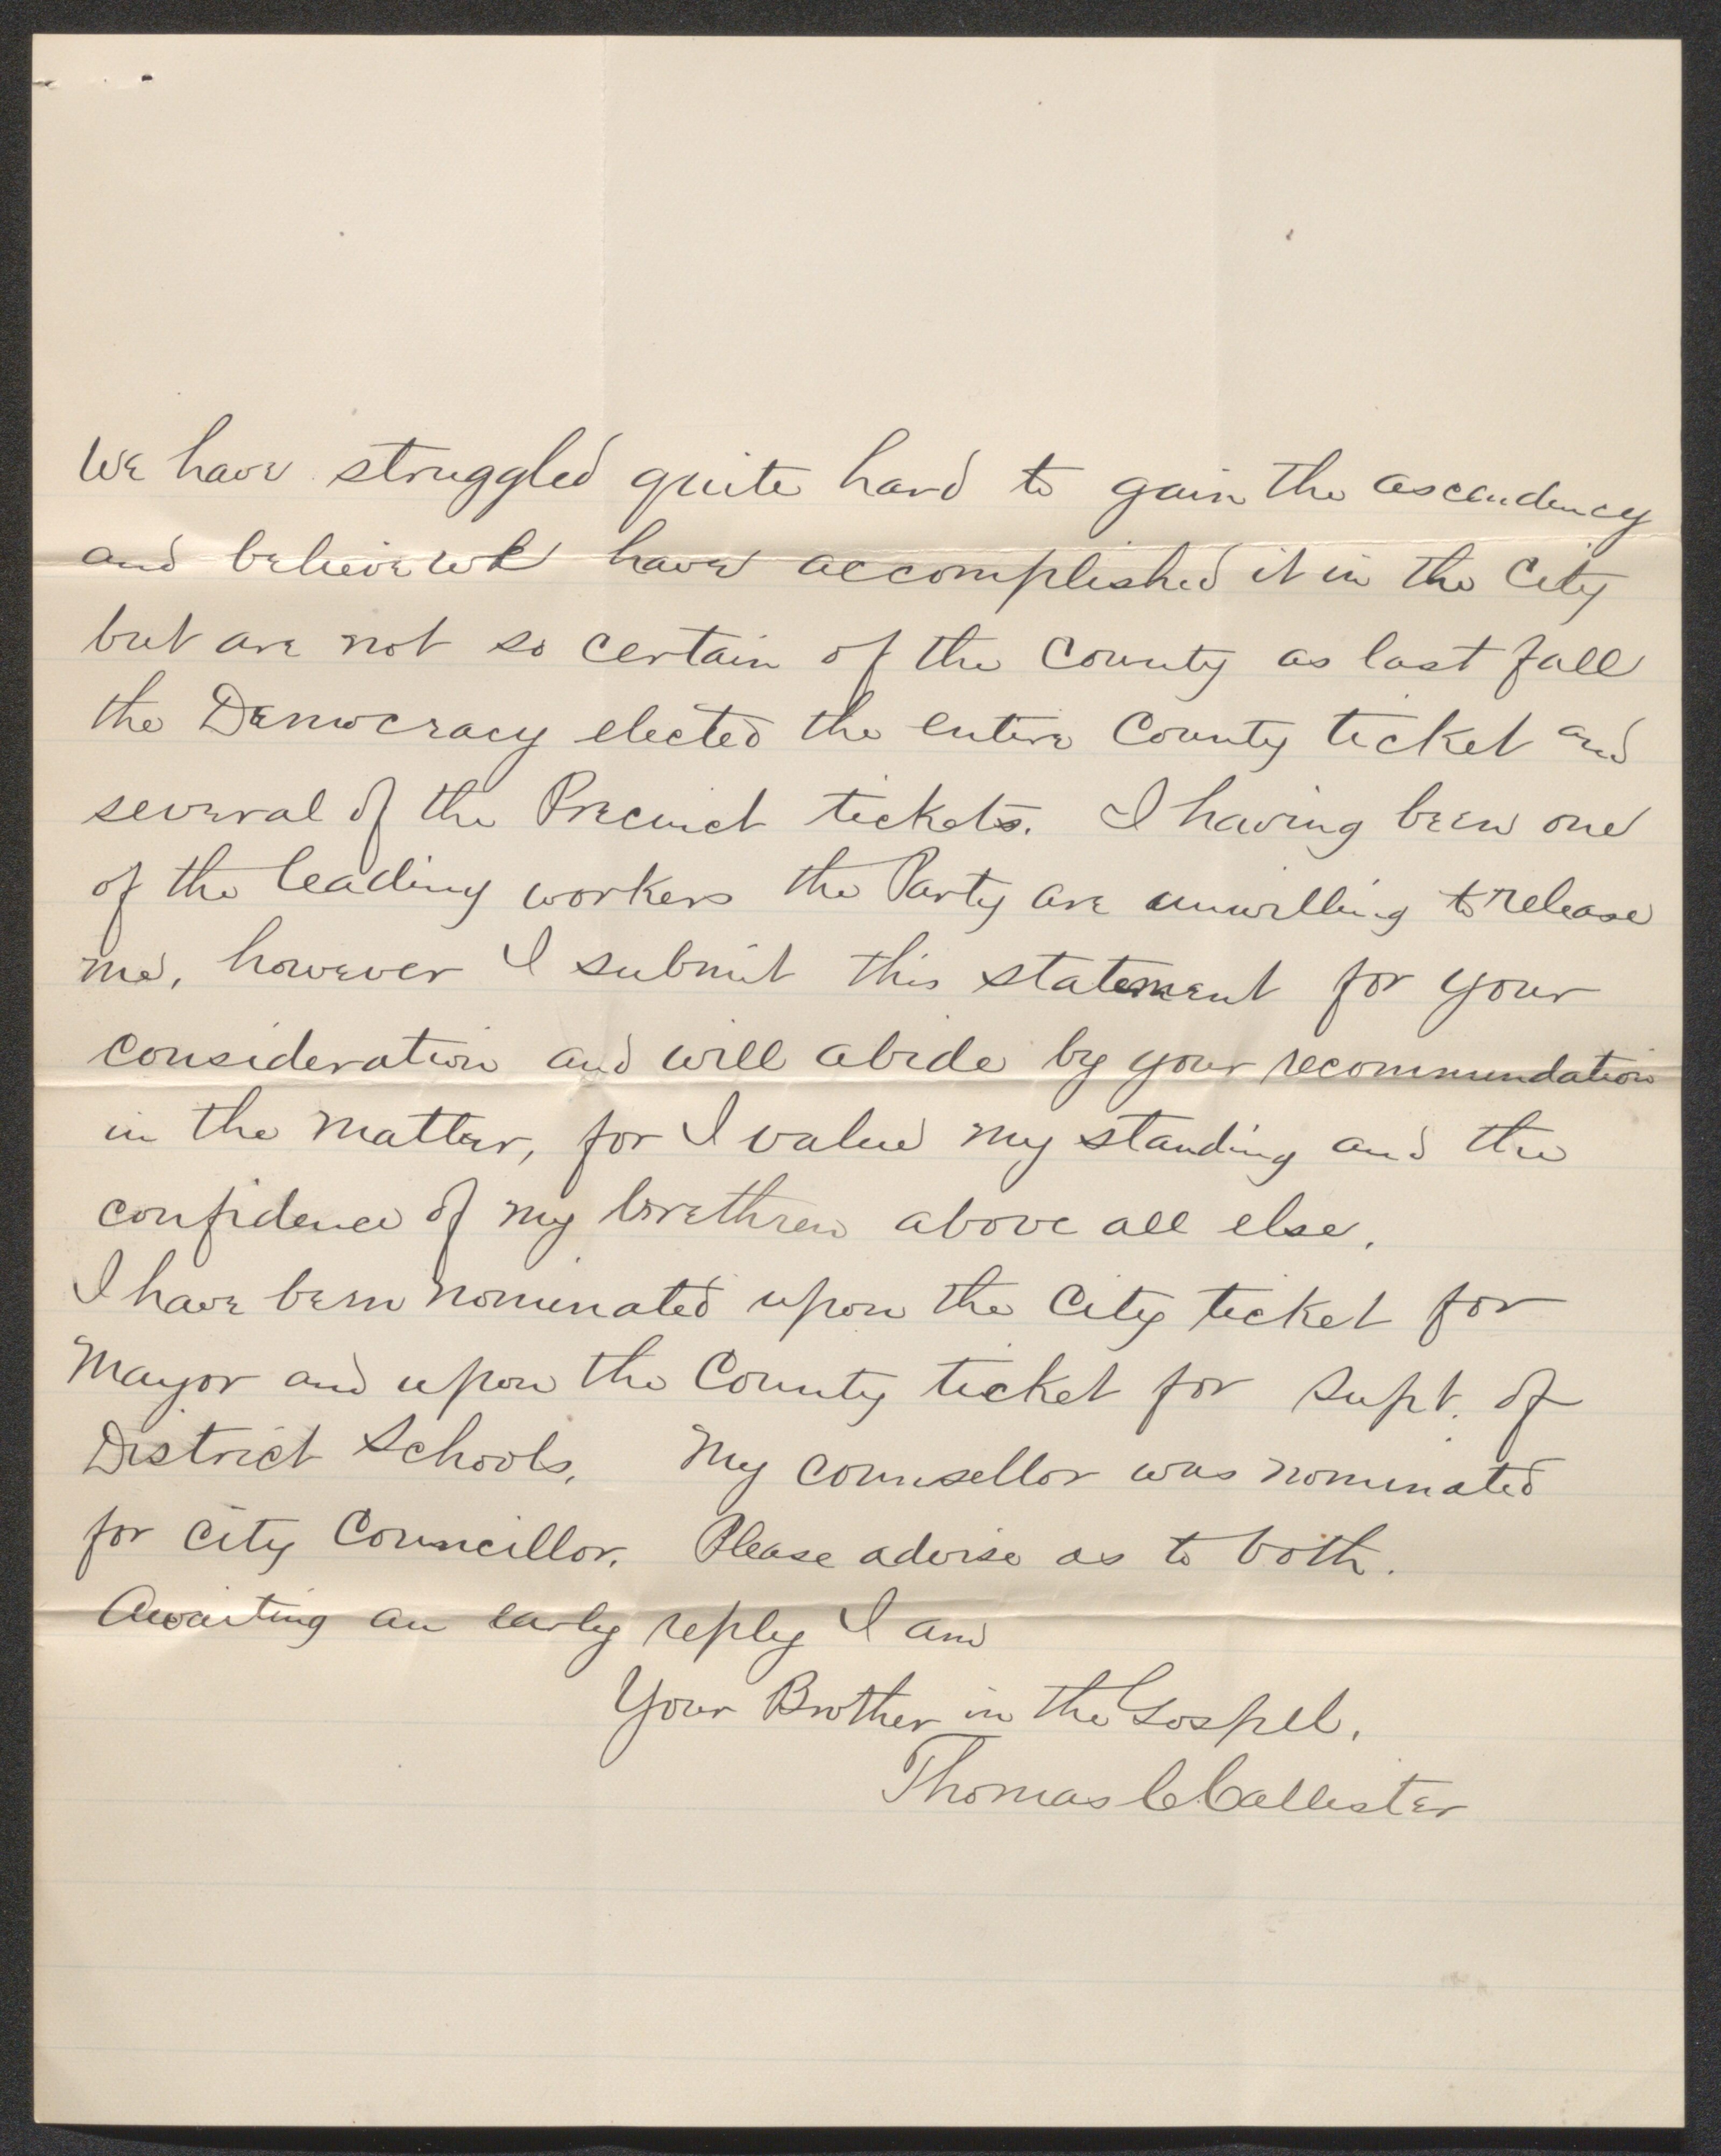 We have struggled quite hard to gain the ascendency
and believe we have accomplished it in the City
but are not so certain of the County as last fall
the Democracy elected the entire County ticket and
several of the Precinct tickets. I having been one
of the leading workers the Party are unwilling to release
me, however I submit this statement for your
consideration and will abide by your recommendation
in the matter, for I value my standing and the
confidence of my brethren above all else.
I have been nominated upon the City ticket for
Mayor and upon the County ticket for Supt. of
District Schools. My counsellor was nominated
for City Councillor. Please advise as to both.
Awaiting an early reply I am
Your Brother in the Gospel.
Thomas C Callister